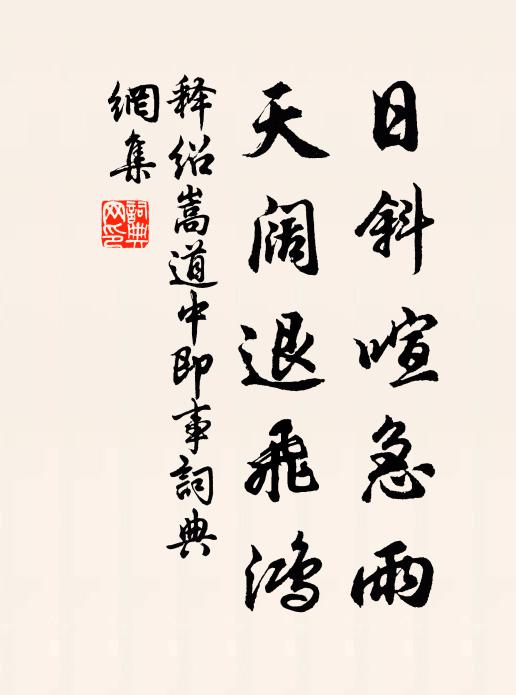 日斜喧急雨
天阔退飛鴻
释绍嵩道中即事詞典
網集
詞典
网印